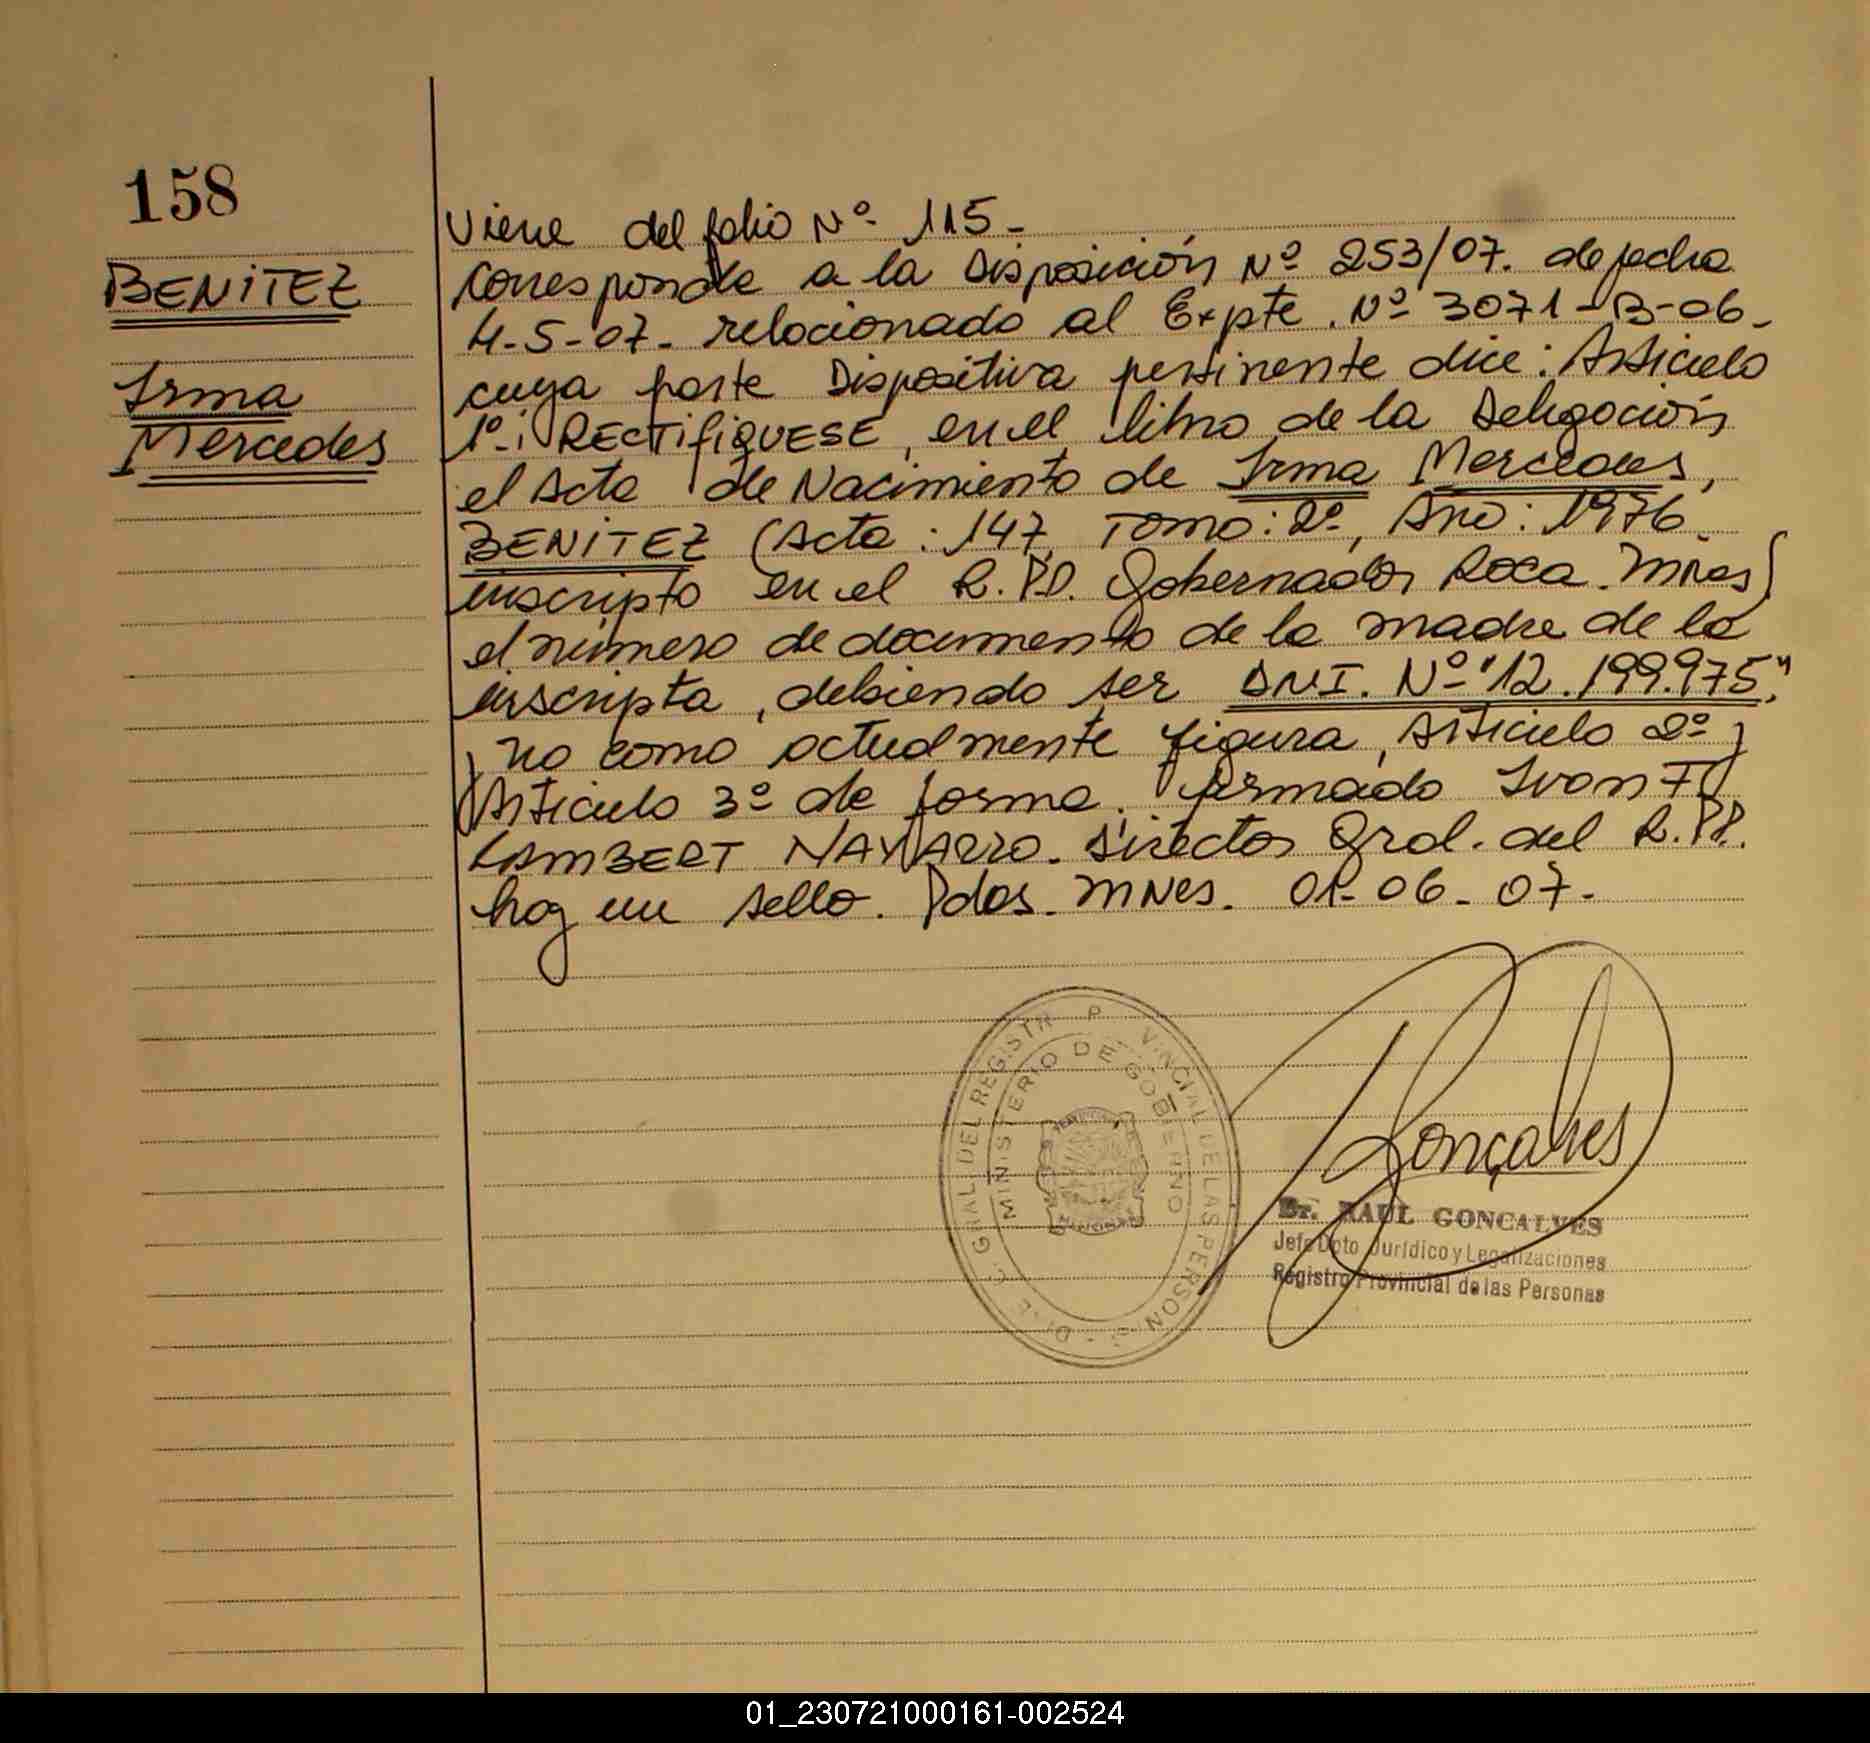 158
BENITEZ
Irma
Mercedes
Viene del folio Nº 115-
Corresponde a la Disposición Nº 253/07. de fecha
4-5-07- relacionado al Expte. Nº 3071-B-06-
cuya parte Dispositiva pertinente dice: Articulo
1º: RECTIFIQUESE, en el libro de la Delegación
el Acta de Nacimiento de Irma Mercedes,
BENITEZ (Acta: 147, Tomo: 2º, Año: 1976
inscripto en el R.P.P. Gobernador Roca. Mnes)
el número de documento de la madre de la
inscripta, debiendo ser DNI. Nº "12.199.975"
y no como actualmente figura, Articulo 2º y
Articulo 3º de forma. firmado Ivan F
LAMBERT NAVARRO. Director Gral. del R.PP.
hay un sello. Pdas. MNes. 01-06-07-
DIREC. GRAL. DEL REGISTR P VINCIAL DE LAS PERSONAS
MINISTERIO DE GOBIERNO
MISIONES
Gonçalves
Dr. RAUL GONCALVES
Jefe Dpto Jurídico y Legalizaciones
Registro Provincial de las Personas
01_230721000161-002524